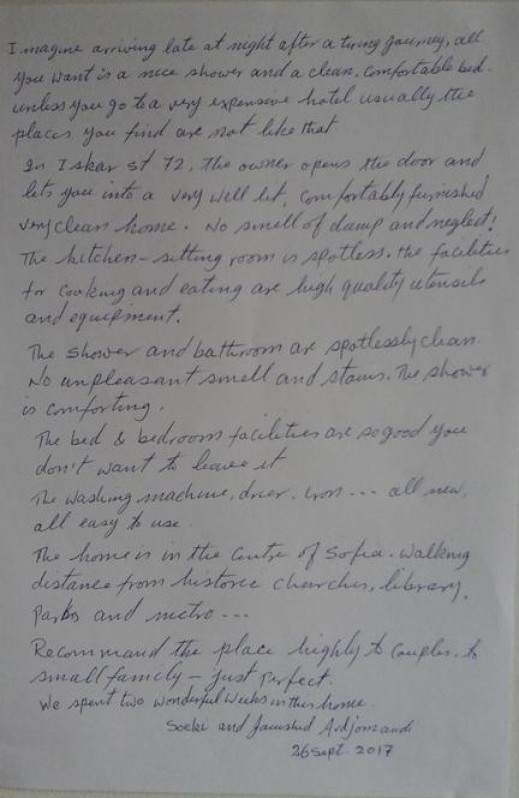 Imagine arriving late at night after a tiring journey, all
you want is a nice shower and a clean, comfortable bed.
unless you go to a very expensive hotel usually the
places you find are not like that
In Iskar st 72, the owner opens the door and
lets you into a very well lit, comfortably furnished
very clean home. No smell of damp and neglect!
The kitchen-sitting room is spotless. the facilities
for cooking and eating are high quality utensils
and equipment.
The shower and bathroom are spotlessly clean.
No unpleasant smell and stains. The shower
is comforting.
The bed & bedroom facilities are so good you
don't want to leave it
The washing machine, drier, iron --- all new,
all easy to use.
The home is in the centre of Sofia. Walking
distance from historic churches, library,
Parks and metro ---
Recommand the place highly to couples, to
small family - just perfect.
We spent two wonderful weeks in this home.
and Jamshid Adjomandi
26 Sept. 2017